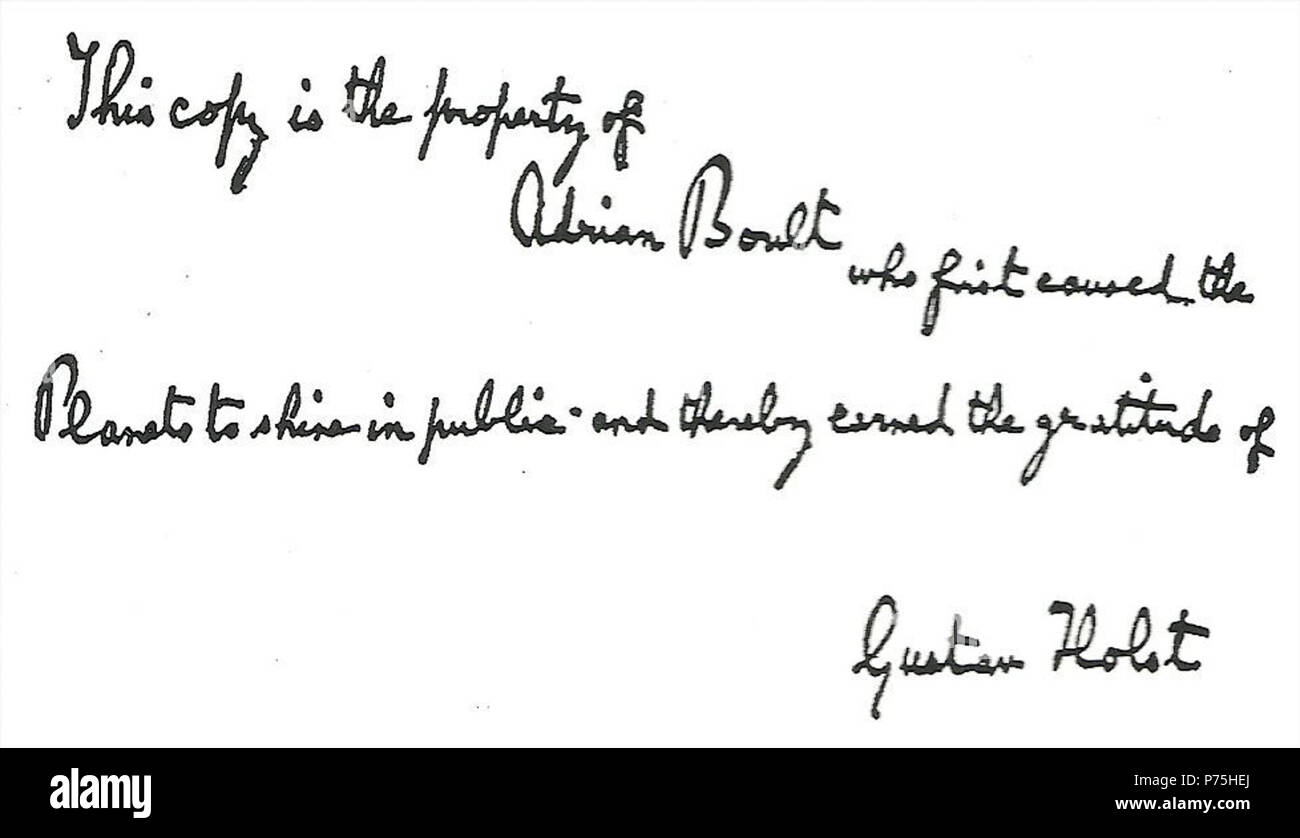 This copy is the property of
Adrian Boult
who first caused the
Planets to shine in public - and thereby earned the gratitude of
Gustav Holst
a alamy stock photo
P75HEJ
www.alamy.com